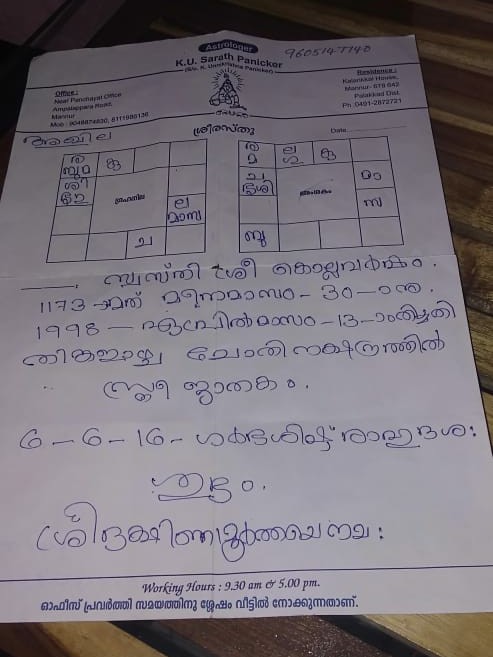 Astrologer
K.U. Sarath Panicker
(S/o. K. Unnikrishna Panicker)
9605147740
Office :
Near Panchayat Office
Ampalappara Road,
Mannur
Mob : 9048874830, 8111988136
Residence :
Kalarikkal House,
Mannur- 678 642
Palakkad Dist.
Ph :0491-2872721
ശ്രീരസ്തു
Date
അഖില
ര
ബുമ
ശി
കു
ഗ്രഹനില
ല
മാസ
ച
ര
മ
ല
ഗു
കു
ച
ശി
അംശകം
മാ
സ
ബു
സ്വസ്തി ശ്രീ കൊല്ലവർഷം.
1173 -ാമത് മീനമാസം - 30 -ാം നു.
1998 - ഏപ്രിൽമാസം -13-ാംതിയ്യതി
തിങ്കളാഴ്ച ചോതി നക്ഷത്രത്തിൽ
സ്ത്രീ ജാതകം.
6 - 6 - 16 - ഗർഭശിഷ്ട രാഹുദശ:
ശുഭം.
ശ്രീദക്ഷിണാമൂർത്തയെ നമ:
Working Hours : 9.30 am & 5.00 pm.
ഓഫീസ് പ്രവർത്തി സമയത്തിനു ശ്ശേഷം വീട്ടിൽ നോക്കുന്നതാണ്.